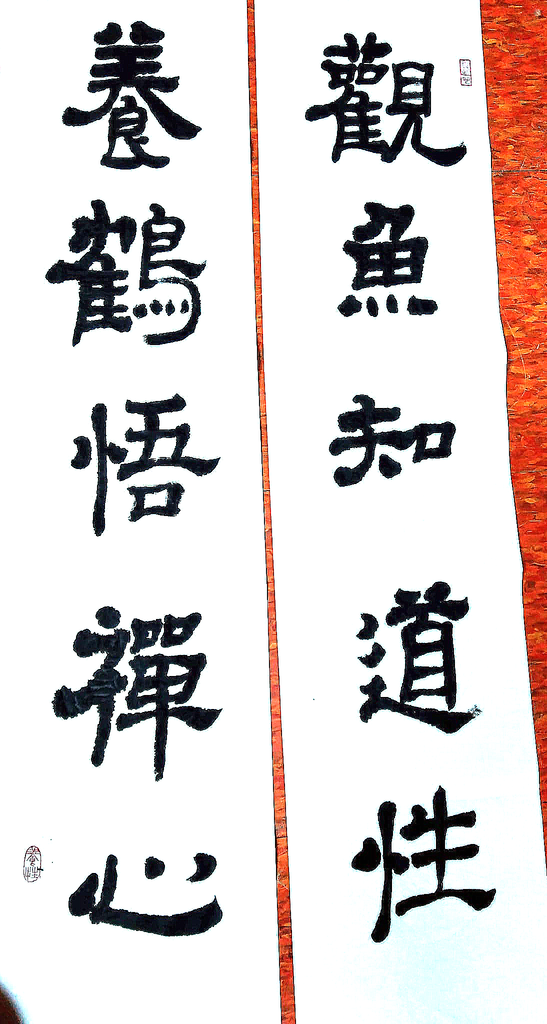 觀魚知道性
養鶴悟禪心